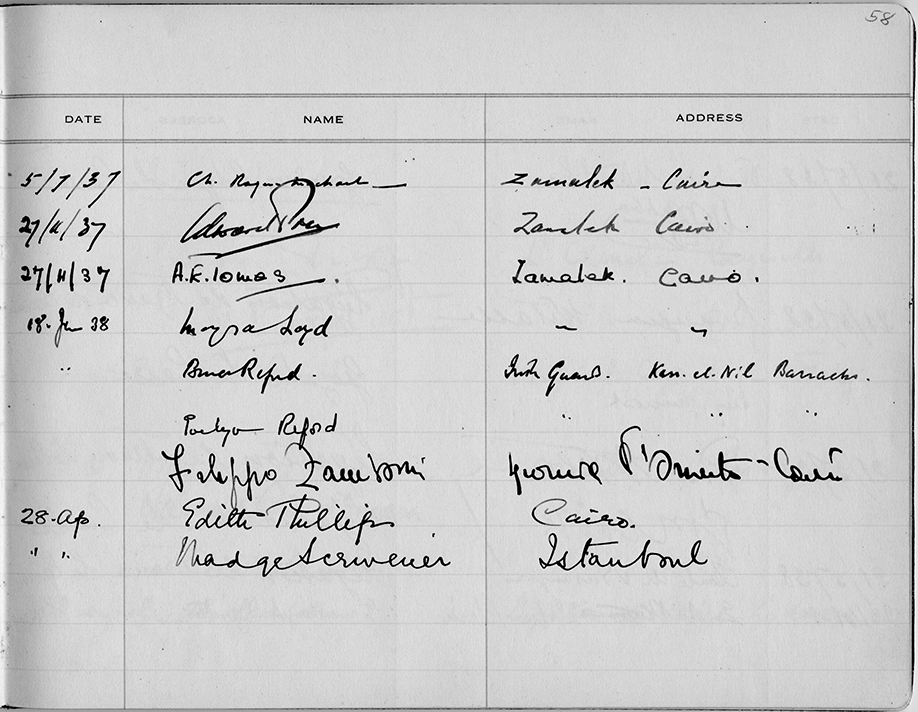 58
DATE NAME ADDRESS
5/7/37 Ch. Zamalek - Cairo
27/11/37 Edward Zamalek Cairo
27/11/37 A.E. Tomas. Zamalek. Cairo.
18. Jan 38 Moyra Loyd " "
" Bruce Reford. Irish Guards. Kasr-el-Nil Barracks.
Evelyn Reford " " "
Filippo Zamboni
28-Ap. Edith Phillips Cairo.
" " Madge Scrivener Istanboul